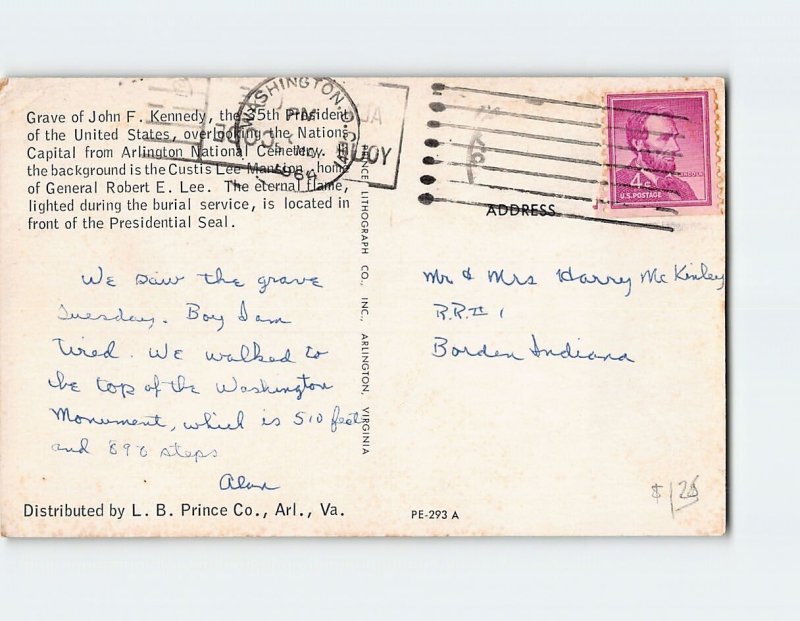 Grave of John F. Kennedy, the 35th President
of the United States, overlooking the Nation's
Capital from Arlington National Cemetery. In
the background is the Custis Lee Mansion, home
of General Robert E. Lee. The eternal flame,
lighted during the burial service, is located in
front of the Presidential Seal.
WASHINGTON, D.C.
PM
1964
4¢
LINCOLN
U.S. POSTAGE
ADDRESS
We saw the grave
Tuesday. Boy I am
tired. We walked to
the top of the Washington
Monument, which is 510 feet
and 898 steps
Alan
PRINCE LITHOGRAPH CO., INC., ARLINGTON, VIRGINIA
Mr & Mrs Harry McKinley
R.R. # 1
Borden Indiana
Distributed by L. B. Prince Co., Arl., Va.
PE-293 A
$1.25